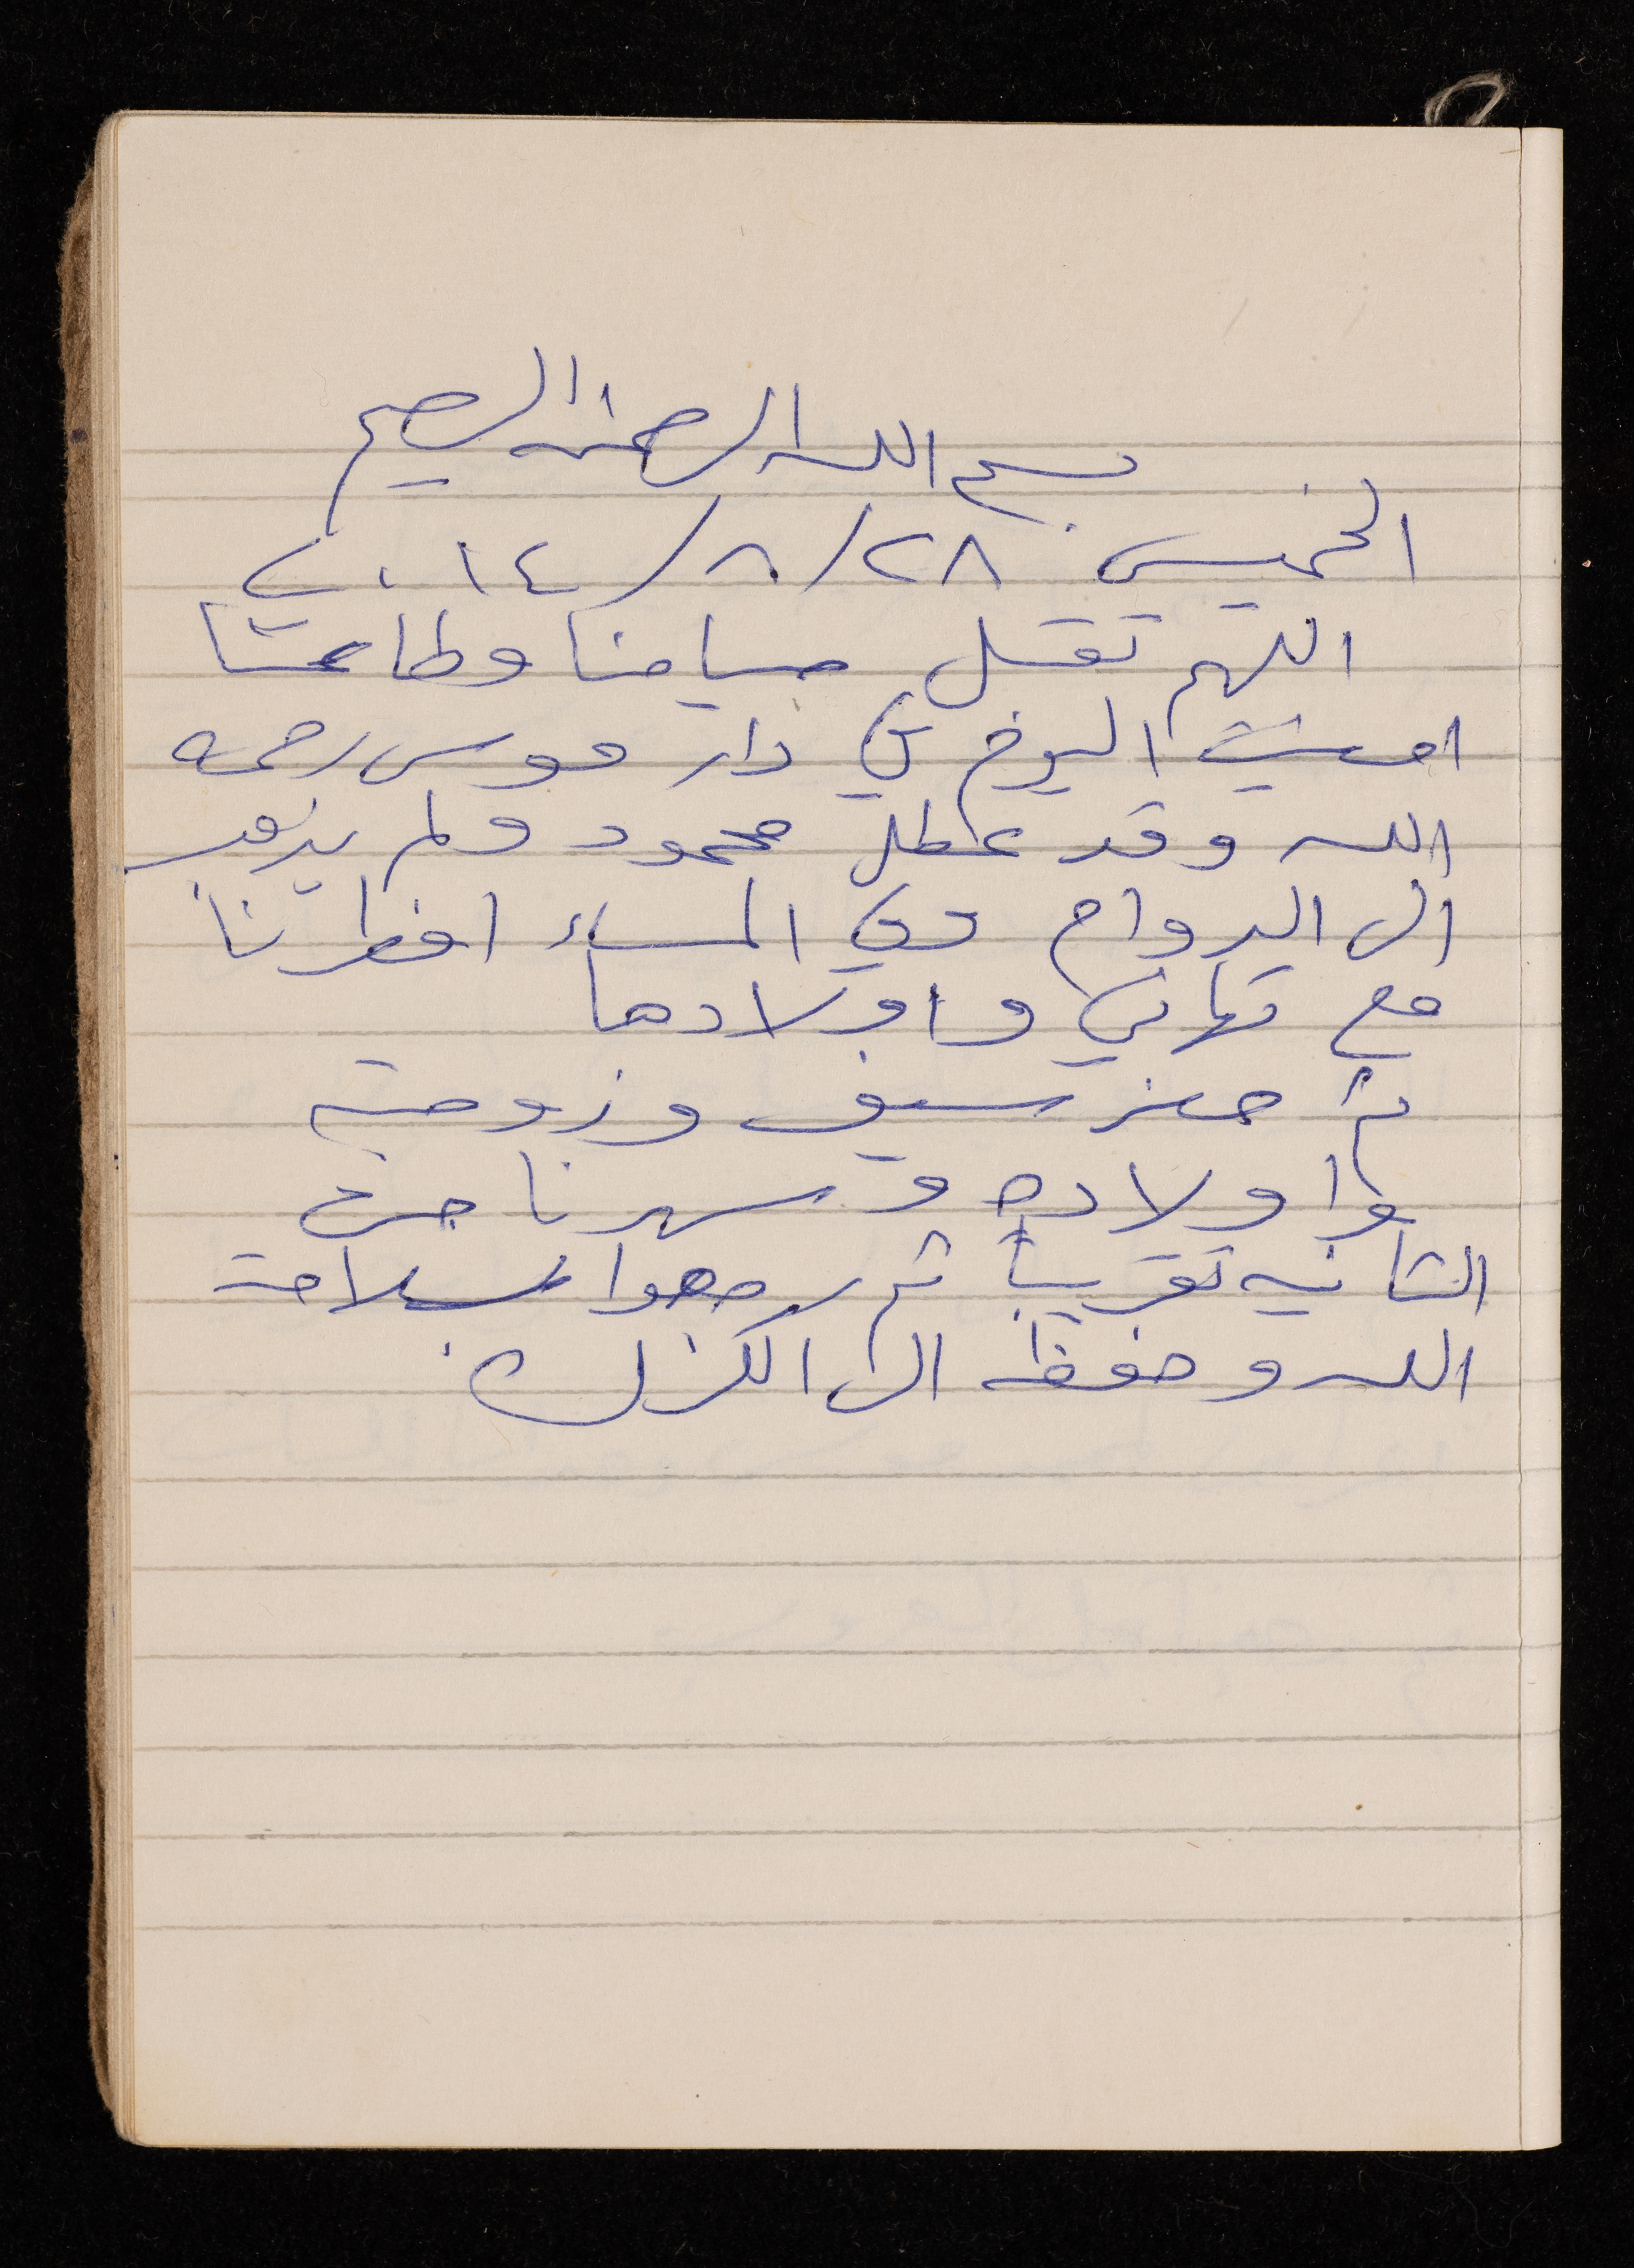 بسم الله الرحمن الرحيم
الخميس ٢٨/٨/٢٠١٤
اللهم تقبل صيامنا وطاعتنا
اليوم في دار موسى رحمه
الله وقد عطل محمود ولم يذهب
الى الدوام وفي المساء افطرنا
مع تهاني واولادها
ثم حضر سيف وزوجته
واولاده وسهرنا حتى
الثانيه تقريبا ثم رجعوا بسلامة
الله وحفظه الى الكرك